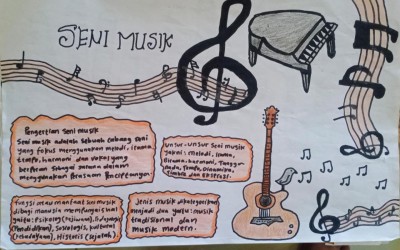 SENI MUSIK
Pengertian Seni musik
Seni musik adalah sebuah cabang seni
yang fokus menggunakan melodi, irama,
tempo, harmoni dan vokal yang
berperan sebagai sarana dalam
mengutarakan perasaan Penciptanya.
unsur-unsur Seni musik
yakni: melodi, irama,
Birama, harmoni, Tangga
nada, Tempo, Dinamika,
Timbre dan Ekspresi.
Fungsi atau manfaat seni musik
dibagi menjadi
yaitu: Psikologi (kejiwaan), Pedagogi
(Pendidikan), Sosiologis, kultural
(kebudayaan), Historis (sejarah)
Jenis musik dikategorikan
menjadi dua yaitu: musik
tradisional dan
musik modern.